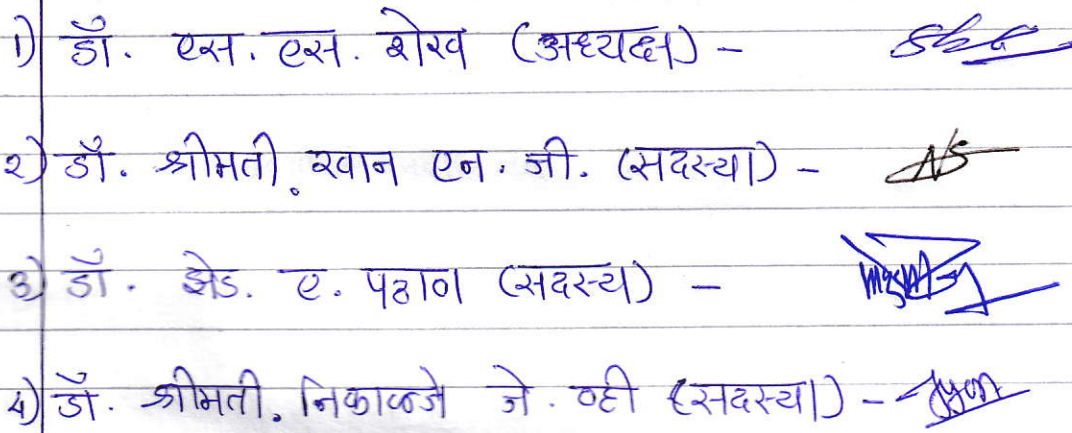 1) डॉ. एस. एस. शेख (अध्यक्ष) -
२) डॉ. श्रीमती. खान एन. जी. (सदस्या) -
३) डॉ. झेड. ए. पठाण (सदस्य) -
4) डॉ. श्रीमती. निकाळजे जे. व्ही (सदस्या) -